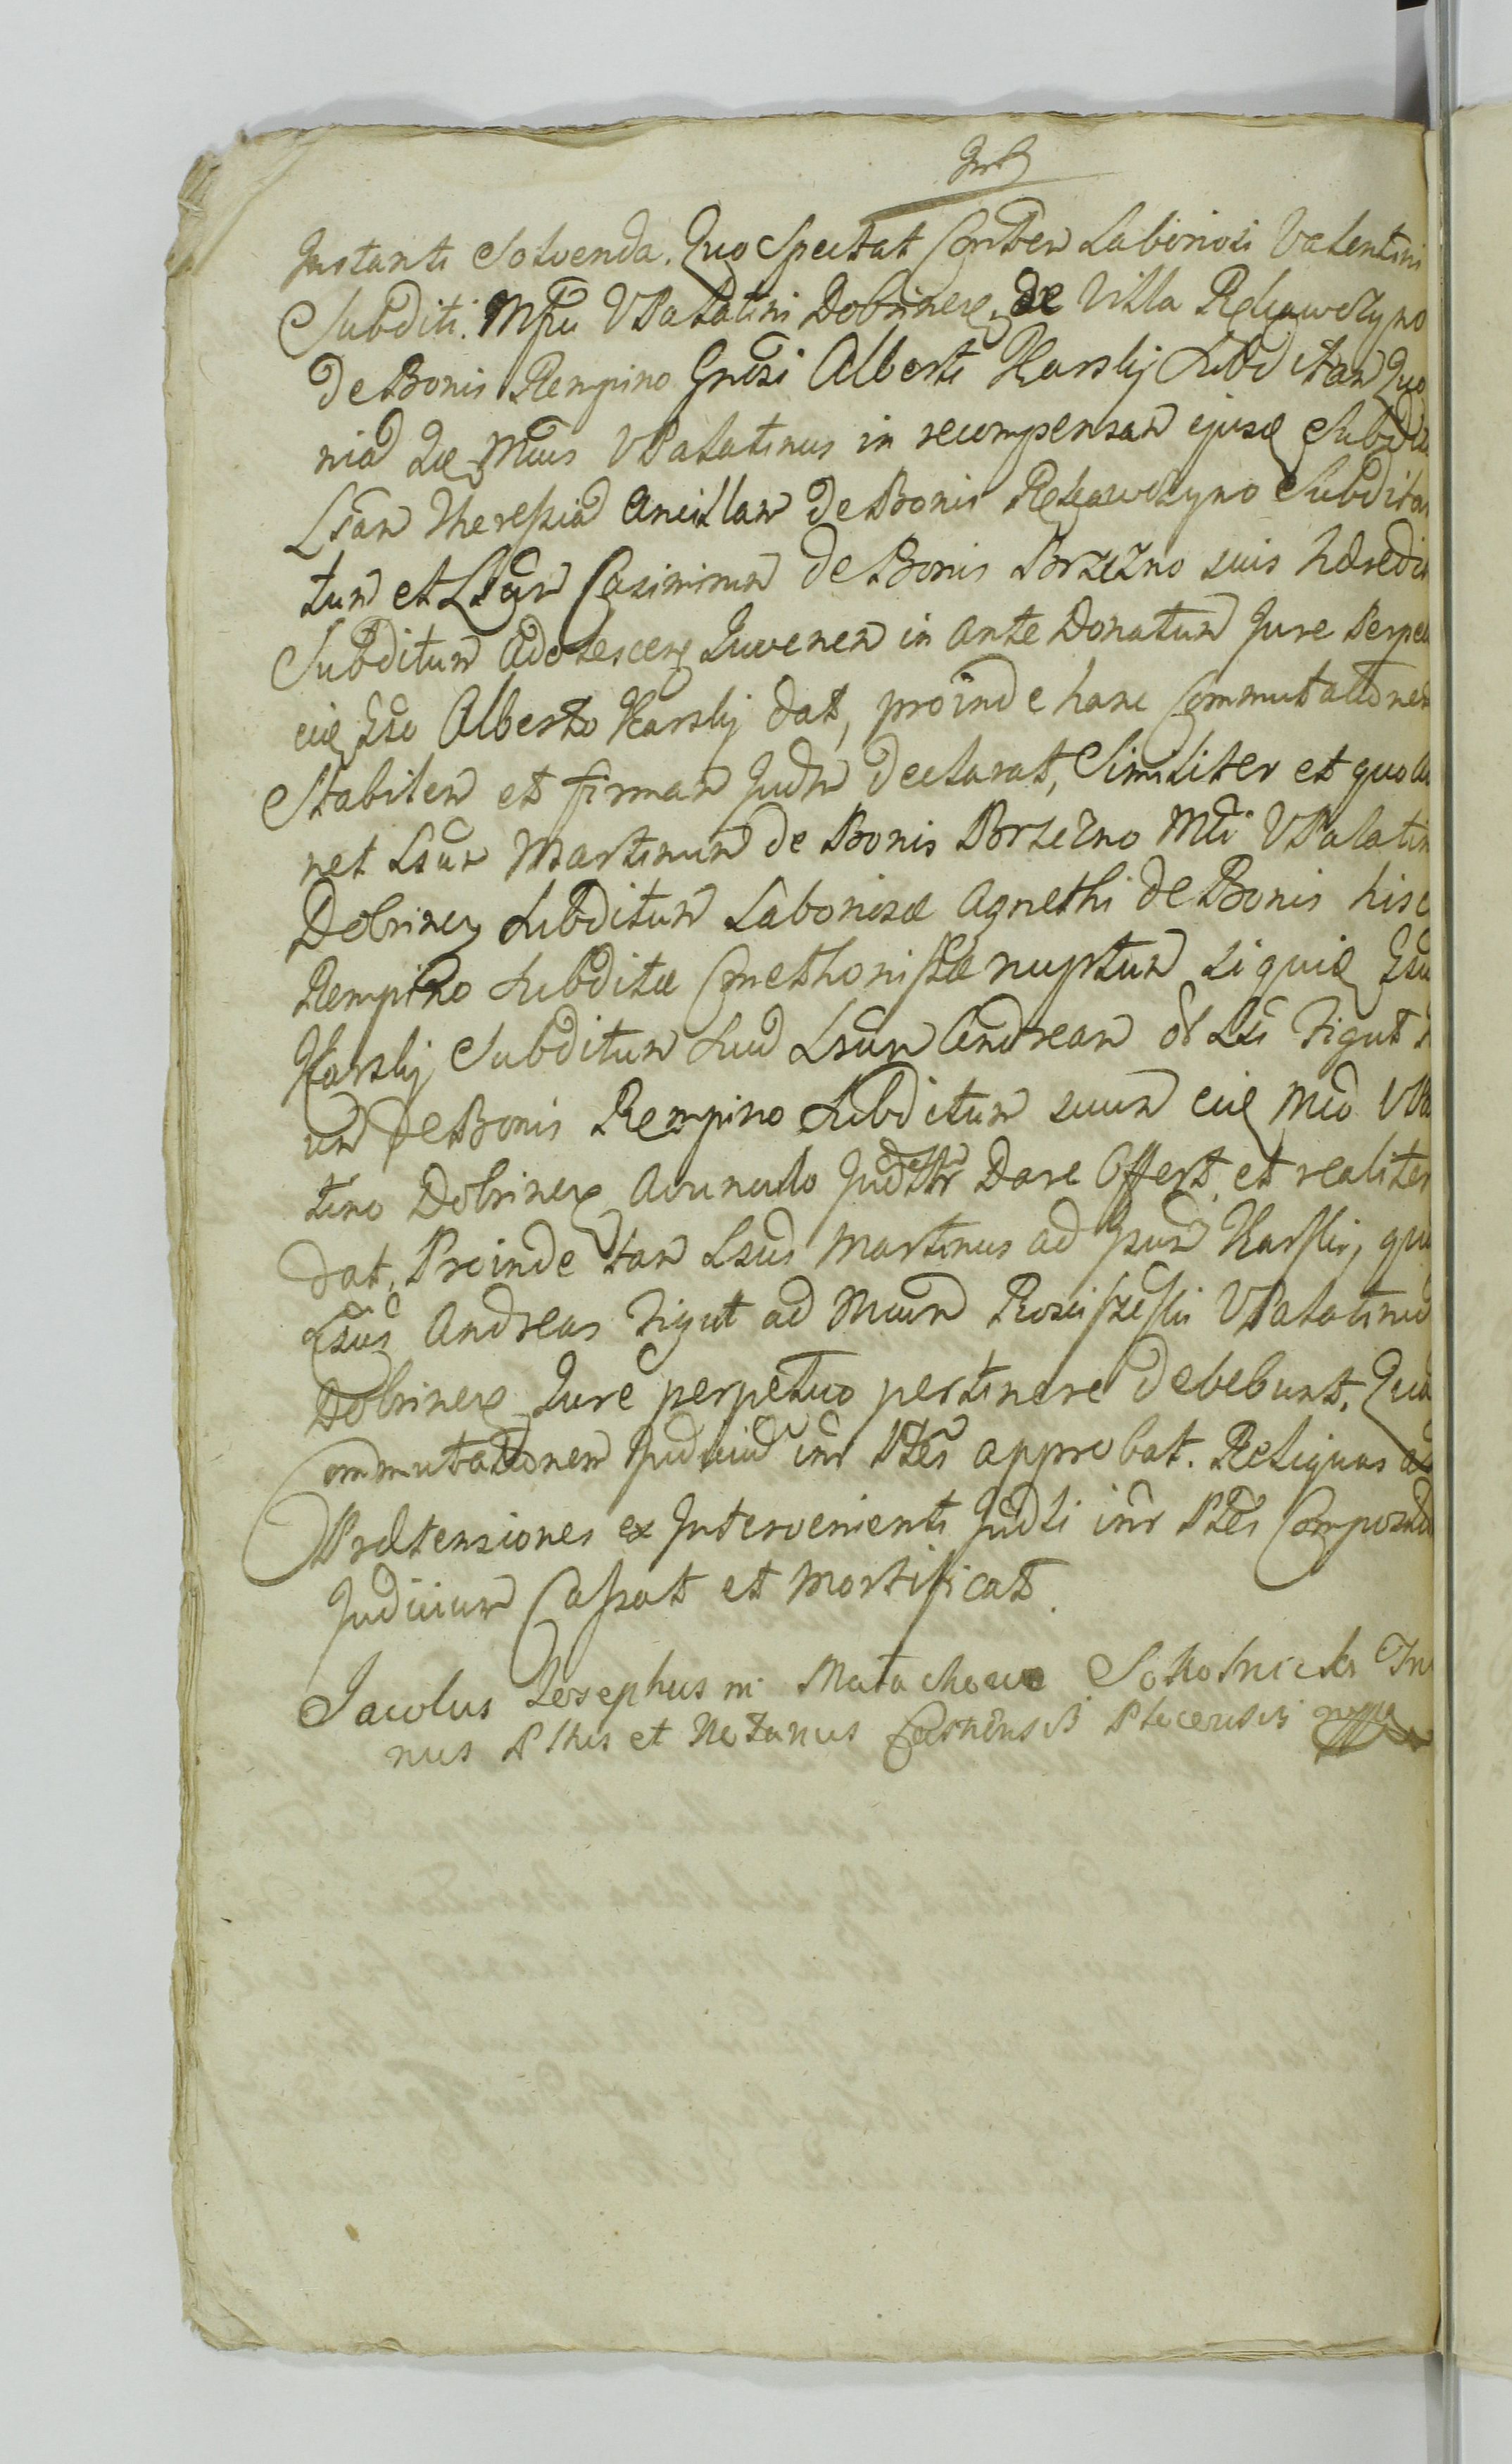 Instanti Solvenda. Quo Spectat Conthen Laboriosi Valentini
Subditi. Mfci VPalatini Dobrinen. de Villa Rękawczyno
de Bonis Rempino Gnosi Alberti Karskij Subditan Quo
niad Mcus VPalatinus in recompensan ejusd Subdit
Lsan Theresiad Ancillan de Bonis Rękawczyno Subditan
tun et Lsun Casimirun de Bonis Brzezno suis hæredi
Subditun Adolescen Juvenen in ante Donatun Jure Perpet
eid Gso Alberto Karskij dat, proinde hanc Commutationen
Stabilen et firman Judm declarat, Similiter et quo
net Lsun Martinun de Bonis Brzezno Mci VPalatin
Dobrinen Subditun Laboriosæ Agnethi de Bonis hisc
Rempino Subditæ Cmethonissæ nuptun siquid Gsu
Karskij Subditun Suud Lsun Andrean Figut
un de Bonis Rempino Subditun suun eid Mco VPa
tino Dobrinen Avunculo Judtr Dare Offert, et realiter
dat, Proinde tan Lsus Martinus ad Gsun Karski, qua
Lsus Andreas Figut ad Mcun Rosciszesski VPalatinud
Dobrinen Jure perpetuo pertinere debebunt, Qua
Commutationen Judiciud inr Ptes approbat. Reliquas
Prætensiones ex Intervenienti Judli inr Ptes Composit
Judicium Cassat et Mortificat.
Jacobus Josephus in Malachowo Sokolnicki
nus Plkis et Notarius Castrensis Plocensis mppa